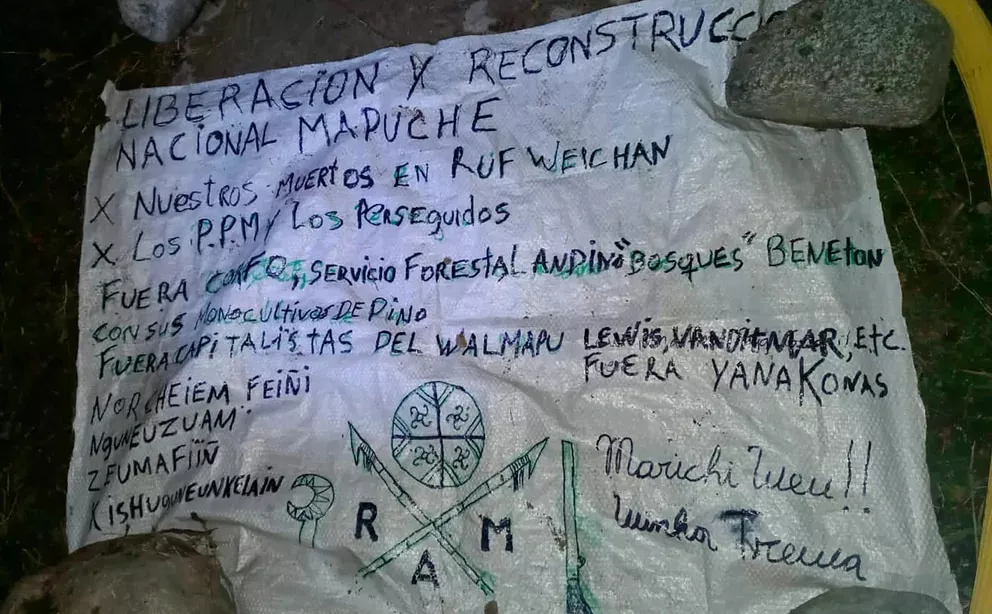 LIBERACION Y RECONSTRUCC
NACIONAL MAPUCHE
X NUESTROS MUERTOS EN RUF WEICHAN
X LOS P.P.M/ LOS PERSEGUIDOS
FUERA CORFO, SERVICIO FORESTAL ANDINO "BOSQUES" BENETON
CON SUS MONOCULTIVOS DE PINO
FUERA CAPITALISTAS DEL WALMAPU LEWIS, VANDITMAR, ETC.
FUERA YANAKONAS
NORCHEIEM FEIÑI
NGUNEUZUAM
ZEUMAFIIÑ
KISHUGUNEUNKELAIN
R A M
Marichi Weu!!